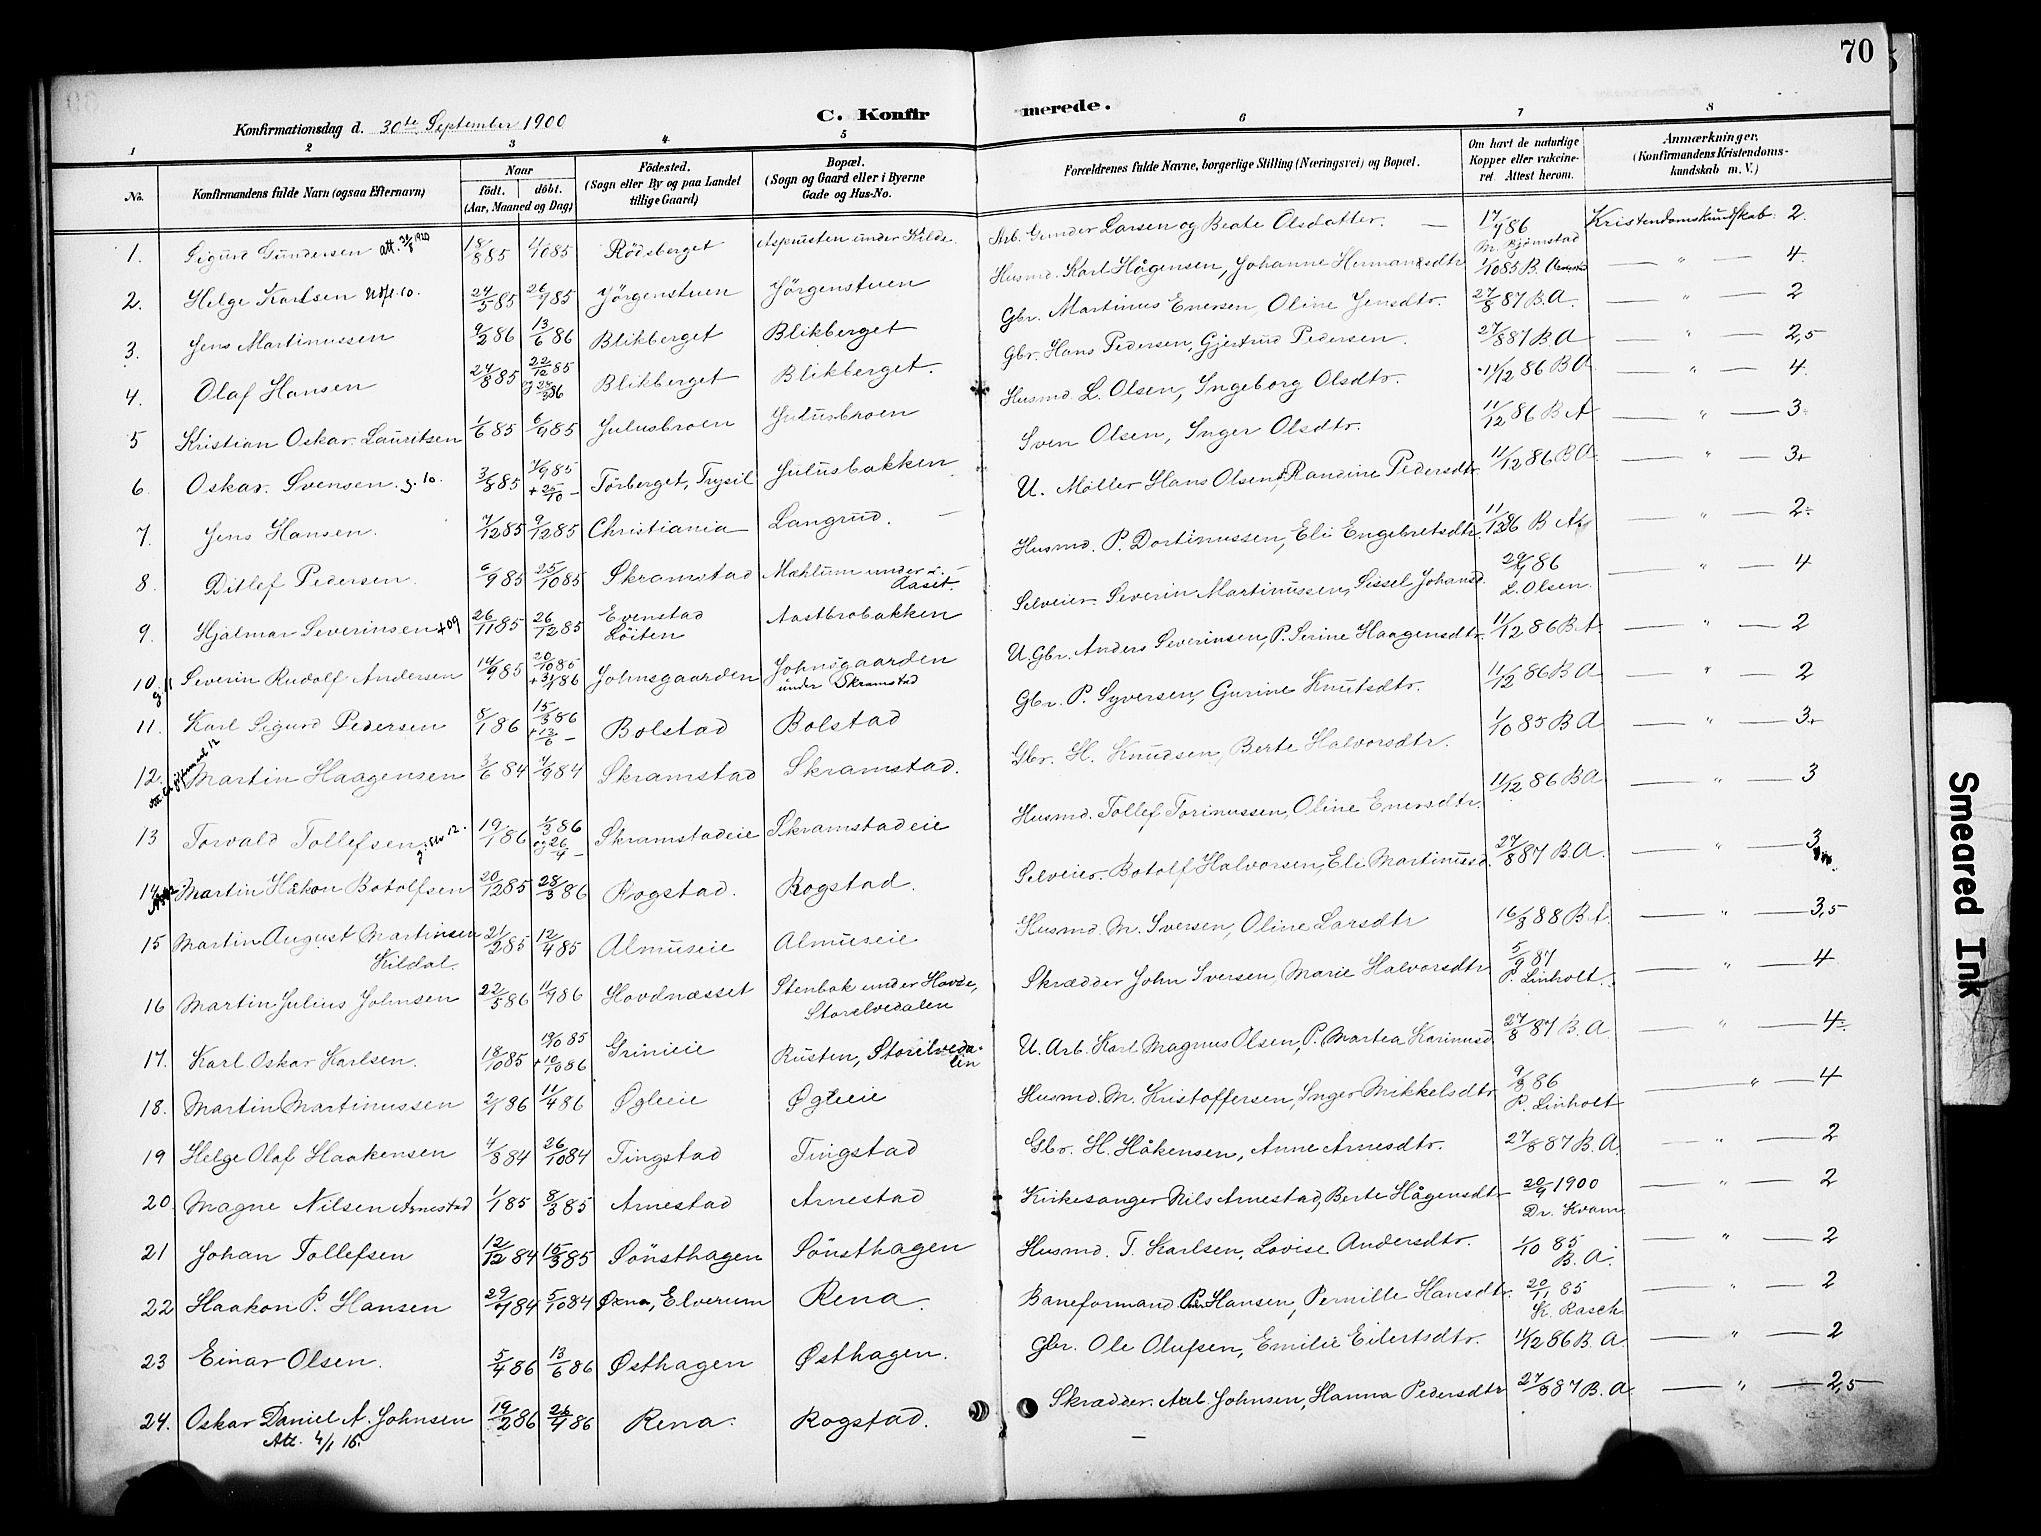 70
Konfirmationsdag d. 30te September 1900
C. Konfirmerede.
1 2 3 4. 5 6 7 8
No. Konfirmandens fulde Navn (ogsaa Efternavn) Naar födt. döbt. (Aar, Maaned og Dag) Födested. (Sogn eller By og paa Landet tillige Gaard) Bopæl. (Sogn og Gaard eller i Byerne Gade og Hus-No. Forældrenes fulde Navne, borgerlige Stilling (Næringsvei) og Bopæl. Om havt de naturlige Kopper eller vakcineret. Attest herom. Anmærkninger. (Konfirmandens Kristendomskundskab m. V.)
1. Sigurd Gundersen 18/8 85 Rödsberget Arb. Gunder Larsen og Beate Olsdatter. — 17/9 86 M. Bjørnstad Kristendomskundskab. 2.
2. Helge Karlsen 24/5 85 26/7 85 Jörgenstuen Jörgenstuen Husmd. Karl Hågensen, Johanne Hermansdtr 1/10 85 B. — " — 4.
3. Jens Martinussen 9/2 86 13/6 86 Blikberget Blikberget Gbr. Martinus Enersen, Oline Jensdtr. 27/8 87 B.A. — " — 2
4. Olaf Hansen 24/8 85 22/12 85 Blikberget Blikberget. Gbr. Hans Pedersen, Gjertrud Pedersen. 27/8 87 B A — " — 2,5
5 Kristian Oskar Lauritsen 1/6 85 6/9 85 Julusbroen Julusbroen Husmd L. Olsen, Ingeborg Olsdtr. 11/12 86 B A — " — 4.
6. Oskar. Svensen. g. 10. 3/8 85 Törberget, Trysil Julusbakken Sven Olsen, Inger Olsdtr. 11/12 86 B A — " — 3.
7. Jens Hansen. 7/12 85 9/12 85 Christiania Langrud. — U. Möller Hans Olsen, Randine Pedersdtr. 11/12 86 B A — " — 3
8. Ditlef Pedersen. 6/9 85 25/10 85 Skramstad Mæhlum under Aaset. Husmd. P. Dortinussen, Eli Engebretsdtr. 11/12 86 B A — " — 2
9. Hjalmar Severinsen 26/11 85 26/12 85 Evenstad Löiten Aastbrobakken Selveier Severin Martinussen, Sissel Johansd. 29/9 86 L. Olsen. — " — 4
10. Severin Rudolf Andersen 14/9 85 20/10 85 Johnsgaarden Johnsgaarden under Skramstad U. Gbr. Anders Severinsen, P. Serine Haagensdtr. 11/12 86 B A. — " — 2
11. Karl Sigurd Pedersen 8/1 86 15/3 86 + 13/6 — Bolstad Bolstad Gbr. P. Syversen, Gurine Knutsdtr. 11/12 86 B A — " — 2
12. Martin Haagensen 3/6 84 7/9 84 Skramstad Skramstad. Gbr. H. Knudsen, Berte Halvorsdtr. 1/10 85 B A — " — 3
13 Torvald Tollefsen 19/1 86 1/3 86 og 26/4 — Skramstadeie Skramstadeie Husmd. Tollef Torinussen, Oline Enersdtr. 11/12 86 B A — " — 3
14. Martin Håkon Botolfsen 20/12 85 28/3 86 Rogstad. Rogstad. Selveier Botolf Halvorsen, Eli Martinusd. 27/8 87 B.A. — " — 3
15 Martin August Martinsen Kildal. 21/2 85 12/4 85 Almuseie Almuseie Husmd. M. Iversen, Oline Larsdtr 16/3 88 B A. — " — 3,5
16 Martin Julius Johnsen 22/5 86 11/9 86 Hovdnæsset Stenbak under Hovde, Storelvedalen Skrædder John Iversen, Marie Halvorsdtr 5/9 87 P. Linholt. — " — 4
17. Karl Oskar Karlsen. 18/10 85 Grinieie Rusten, Storelvedalen U. Arb. Karl Magnus Olsen, P. Martea Karinusd. 27/8 87 B. A — " — 4.
18. Martin Martinussen 2/1 86 11/4 86 Ögleie Ögleie Husmd. M. Kristoffersen, Inger Mikkelsdtr 9/8 86 P. Linholt — " — 4
19 Helge Olaf Haakensen 4/8 84 26/10 84 Tingstad Tingstad Gbr. H. Håkensen, Anne Arnesdtr. 27/8 87 B.A. — " — 2
20. Magne Nilsen Arnestad 1/1 85 8/3 85 Arnestad Arnestad Kirkesanger Nils Arnestad, Berte Hågensdtr 20/9 1900 Dr. Kvam — " — 2
21 Johan Tollefsen 12/12 84 15/3 85 Sönsthagen Sönsthagen Husmd. T. Karlsen, Lovise Andersdtr. 1/10 85 B. A. — " — 2
22 Haakon P. Hansen 29/7 84 5/10 84 Öxna, Elverum Rena. Baneformand P. Hansen, Pernille Hansdtr. 20/11 85 K. Rasch — " — 2
23 Einar Olsen. 5/4 86 13/6 86 Östhagen Östhagen. Gbr. Ole Olufsen, Emilie Eilertsdtr. 11/12 86 B. A. — " — 2
24. Oskar Daniel A. Johnsen 19/2 86 26/4 86 Rena. Rogstad. Skrædder Axel Johnsen, Hanna Pedersdtr. 27/8 87 B. A. — " — 2,5
Att. 4/1 16.
Smeared Ink